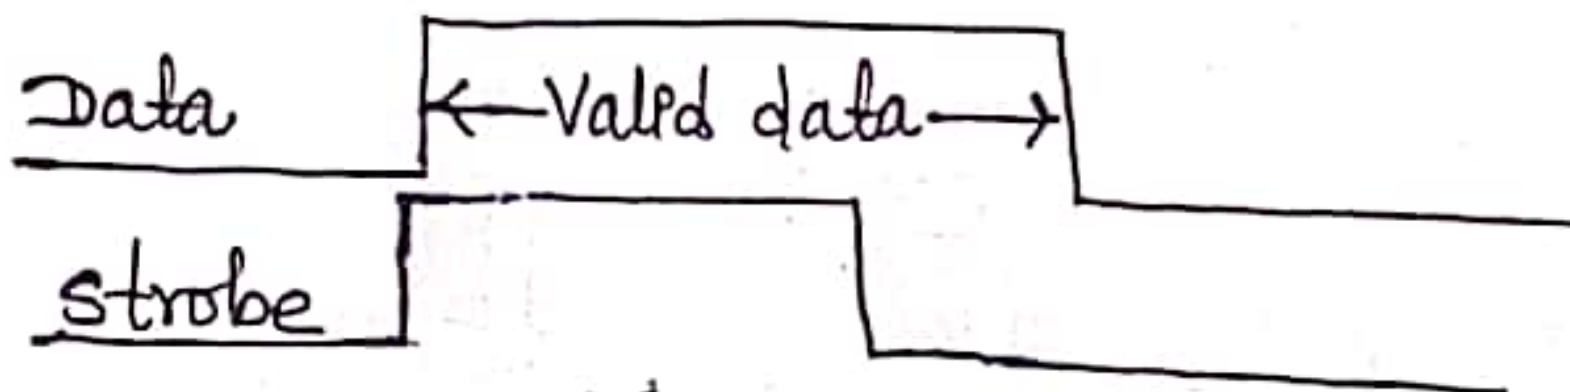 Data
Valid data
Strobe